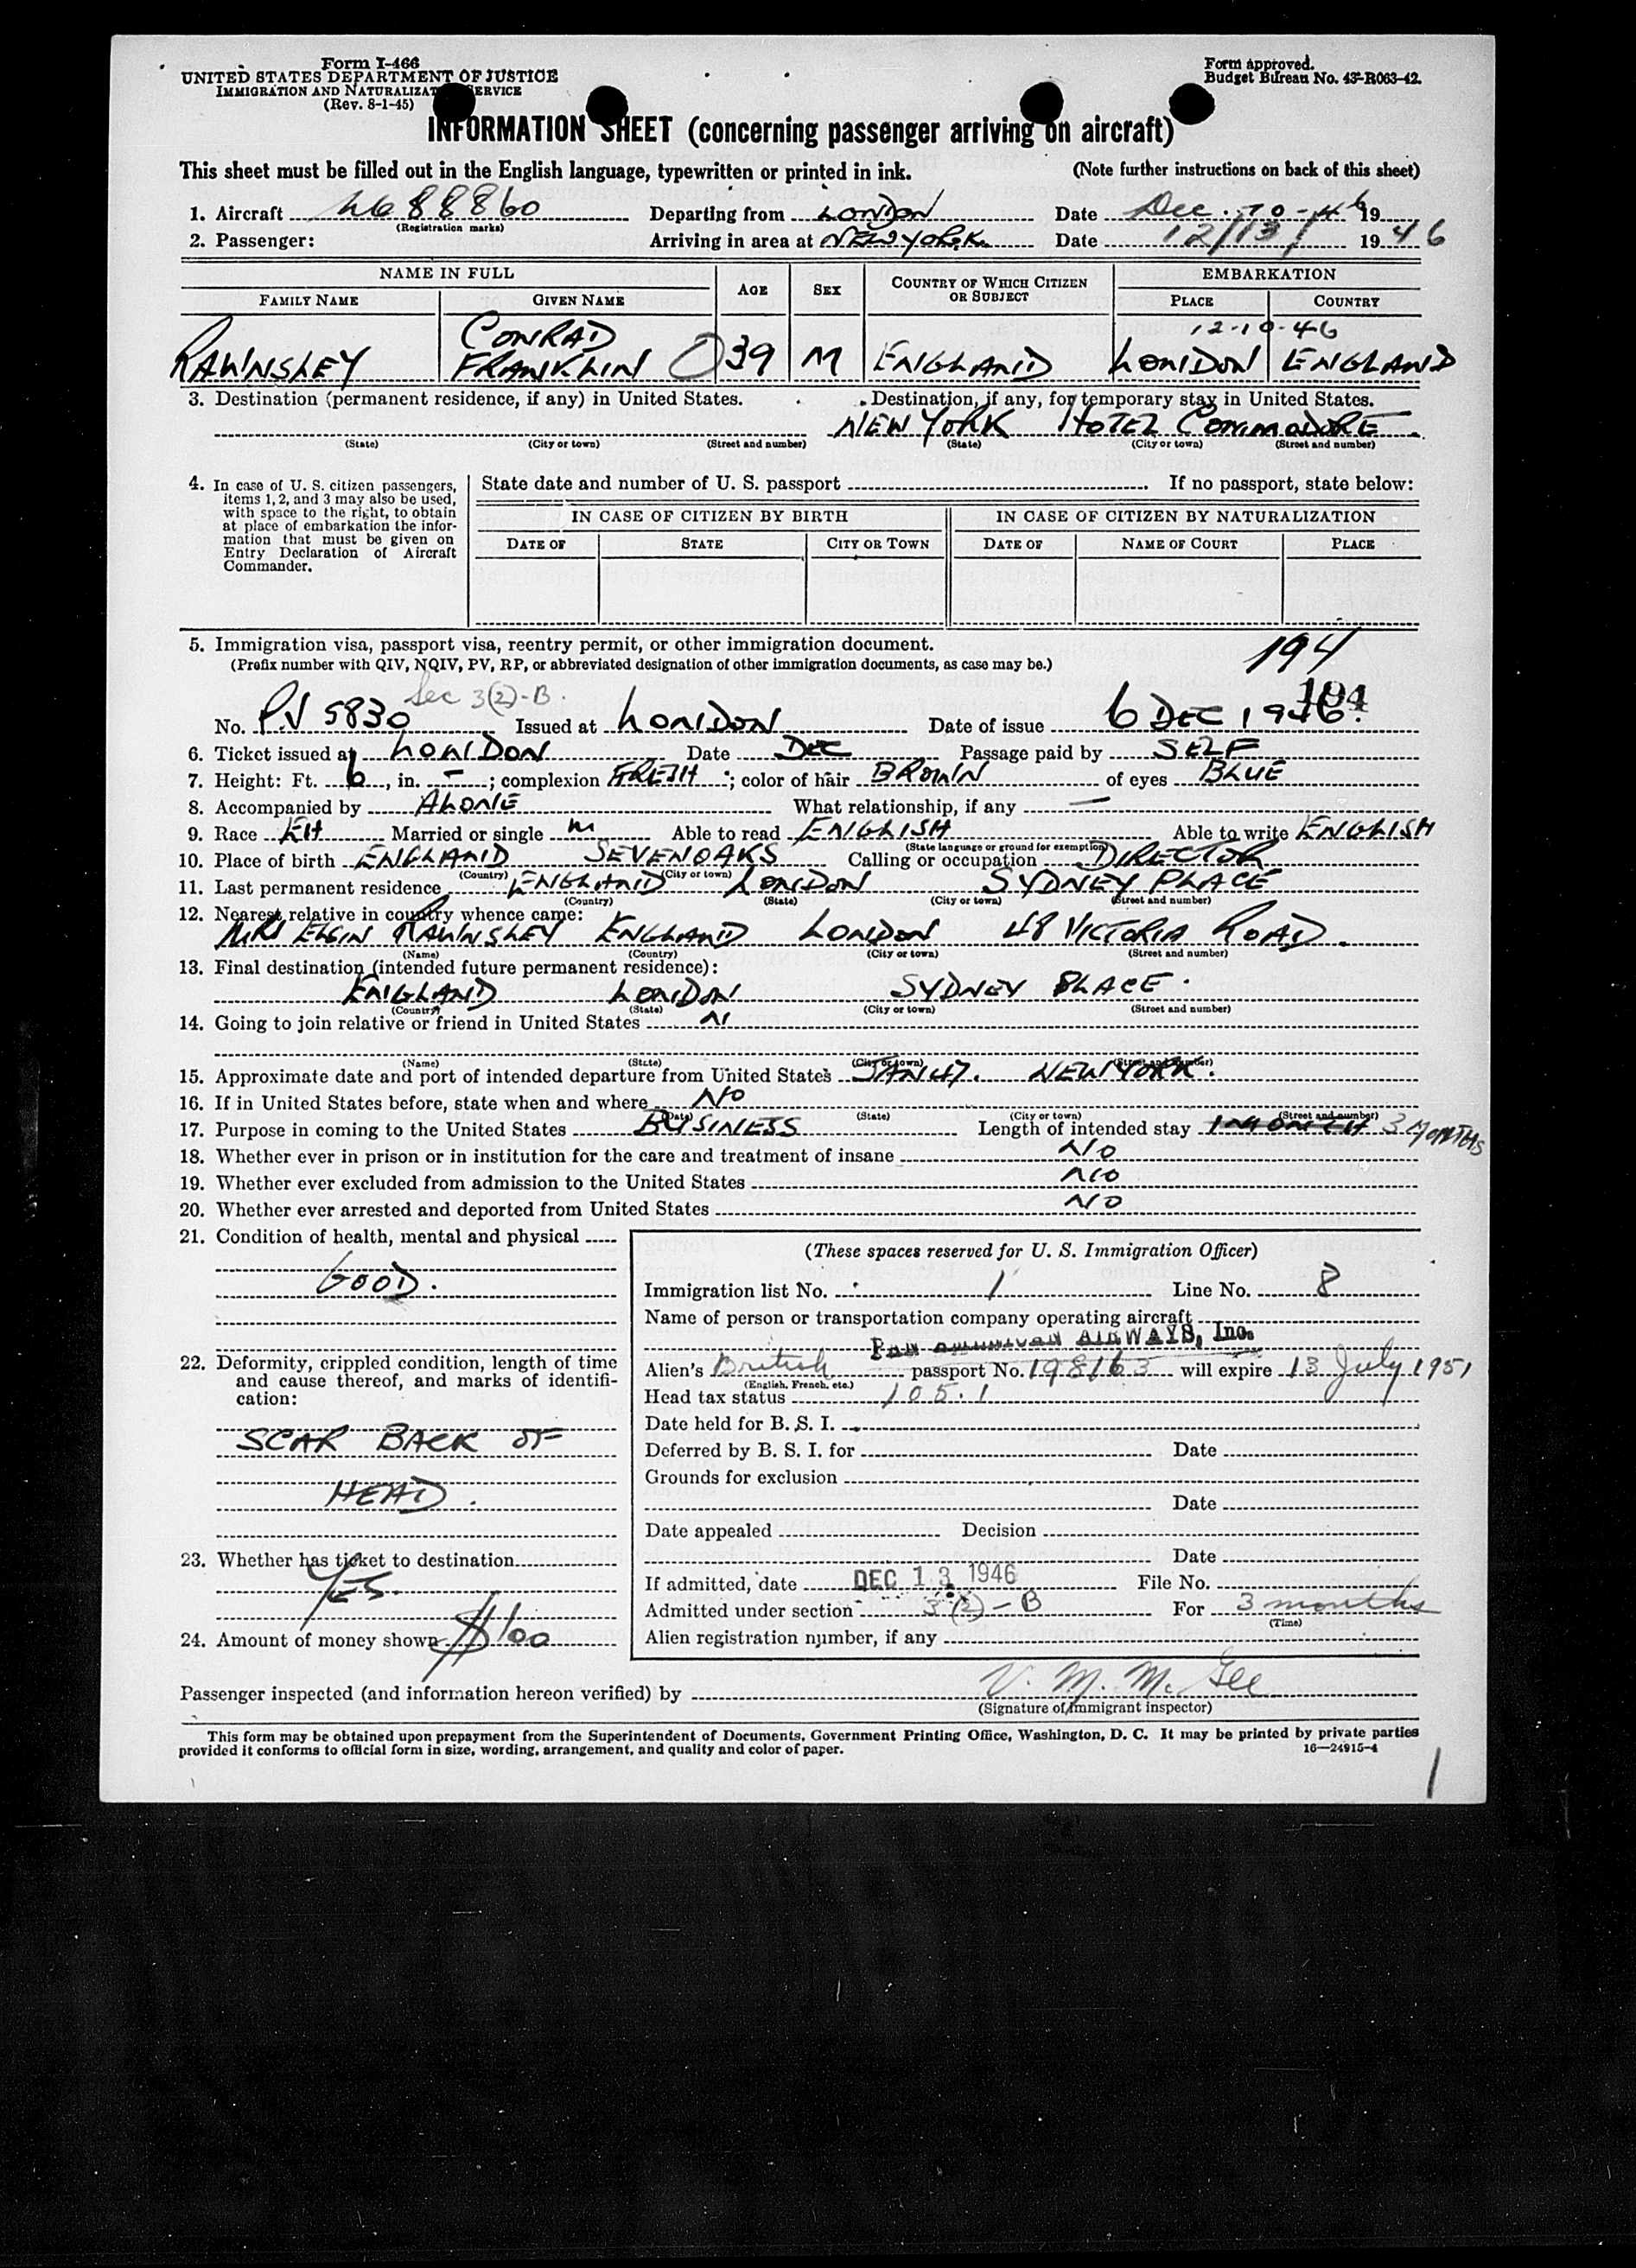 Form I-466
UNITED STATES DEPARTMENT OF JUSTICE
IMMIGRATION AND NATURALIZATION SERVICE
(Rev. 8-1-45)
Form approved.
Budget Bureau No. 43-R063-42.
INFORMATION SHEET (concerning passenger arriving on aircraft)
This sheet must be filled out in the English language, typewritten or printed in ink. (Note further instructions on back of this sheet)
1. Aircraft 88860 Departing from LONDON Date Dec. 10-46 19
(Registration marks)
2. Passenger: Arriving in area at NEW YORK Date 12/13/ 1946
NAME IN FULL AGE SEX COUNTRY OF WHICH CITIZEN OR SUBJECT EMBARKATION
FAMILY NAME GIVEN NAME PLACE COUNTRY
12-10-46
RAWNSLEY CONRAD FRANKLIN 39 M ENGLAND LONDON ENGLAND
3. Destination (permanent residence, if any) in United States. Destination, if any, for temporary stay in United States.
NEW YORK HOTEL COMMODORE.
(State) (City or town) (Street and number) (State) (City or town) (Street and number)
4. In case of U. S. citizen passengers, items 1, 2, and 3 may also be used, with space to the right, to obtain at place of embarkation the information that must be given on Entry Declaration of Aircraft Commander.
State date and number of U. S. passport If no passport, state below:
IN CASE OF CITIZEN BY BIRTH IN CASE OF CITIZEN BY NATURALIZATION
DATE OF STATE CITY OR TOWN DATE OF NAME OF COURT PLACE
5. Immigration visa, passport visa, reentry permit, or other immigration document.
(Prefix number with QIV, NQIV, PV, RP, or abbreviated designation of other immigration documents, as case may be.)
194
Sec 3(2)-B. 194
No. PV 5830 Issued at LONDON Date of issue 6 DEC 1946.
6. Ticket issued at LONDON Date DEC Passage paid by SELF
7. Height: Ft. 6, in. -; complexion FRESH; color of hair BROWN of eyes BLUE
8. Accompanied by ALONE What relationship, if any —
9. Race EH Married or single M Able to read ENGLISH Able to write ENGLISH
(State language or ground for exemption)
10. Place of birth ENGLAND SEVENOAKS Calling or occupation DIRECTOR
(Country) (City or town)
11. Last permanent residence ENGLAND LONDON SYDNEY PLACE
(Country) (State) (City or town) (Street and number)
12. Nearest relative in country whence came:
MRS ELGIN RAWNSLEY ENGLAND LONDON 48 VICTORIA ROAD.
(Name) (Country) (City or town) (Street and number)
13. Final destination (intended future permanent residence):
ENGLAND LONDON SYDNEY PLACE.
(Country) (State) (City or town) (Street and number)
14. Going to join relative or friend in United States N
(Name) (State) (City or town) (Street and number)
15. Approximate date and port of intended departure from United States JAN 47. NEW YORK.
16. If in United States before, state when and where NO
(Date) (State) (City or town) (Street and number)
17. Purpose in coming to the United States BUSINESS Length of intended stay 1 MONTH 3 MONTHS
18. Whether ever in prison or in institution for the care and treatment of insane NO
19. Whether ever excluded from admission to the United States NO
20. Whether ever arrested and deported from United States NO
21. Condition of health, mental and physical
GOOD.
22. Deformity, crippled condition, length of time and cause thereof, and marks of identification:
SCAR BACK OF
HEAD.
23. Whether has ticket to destination
YES.
24. Amount of money shown $100
(These spaces reserved for U. S. Immigration Officer)
Immigration list No. 1 Line No. 8
Name of person or transportation company operating aircraft
PAN AMERICAN AIRWAYS, Inc.
Alien's British passport No. 198163 will expire 13 July 1951
(English, French, etc.)
Head tax status 105.1
Date held for B. S. I.
Deferred by B. S. I. for Date
Grounds for exclusion
Date
Date appealed Decision
Date
If admitted, date DEC 13 1946 File No.
Admitted under section 3(2)-B For 3 months
(Time)
Alien registration number, if any
Passenger inspected (and information hereon verified) by V. M. McGee
(Signature of Immigrant inspector)
This form may be obtained upon prepayment from the Superintendent of Documents, Government Printing Office, Washington, D. C. It may be printed by private parties
provided it conforms to official form in size, wording, arrangement, and quality and color of paper. 16—24915-4
1